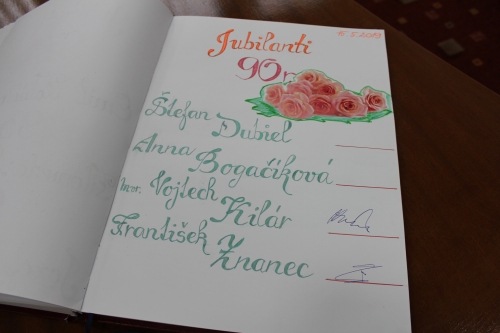 Jubilanti
90r
Štefan
Dubiel
Anna
Bogačíková
Vojtech
Kilár
František
Žnanec